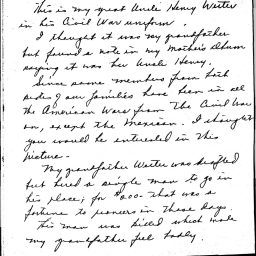 This is my great Uncle Henry Wester
in his Civil War uniform.
I thought it was my grandfather
but found a note in my Mother's Album
saying it was her Uncle Henry.
Since some members from both
sides of our families have been in all
the American Wars from the Civil War
on, except the Mexican. I thought
you would be interested in this
picture.
My grandfather Wester was drafted
but hired a single man to go in
his place; for $ 00.- That was a
fortune to pioneers in those days.
This man was killed which made
my grandfather feel badly.